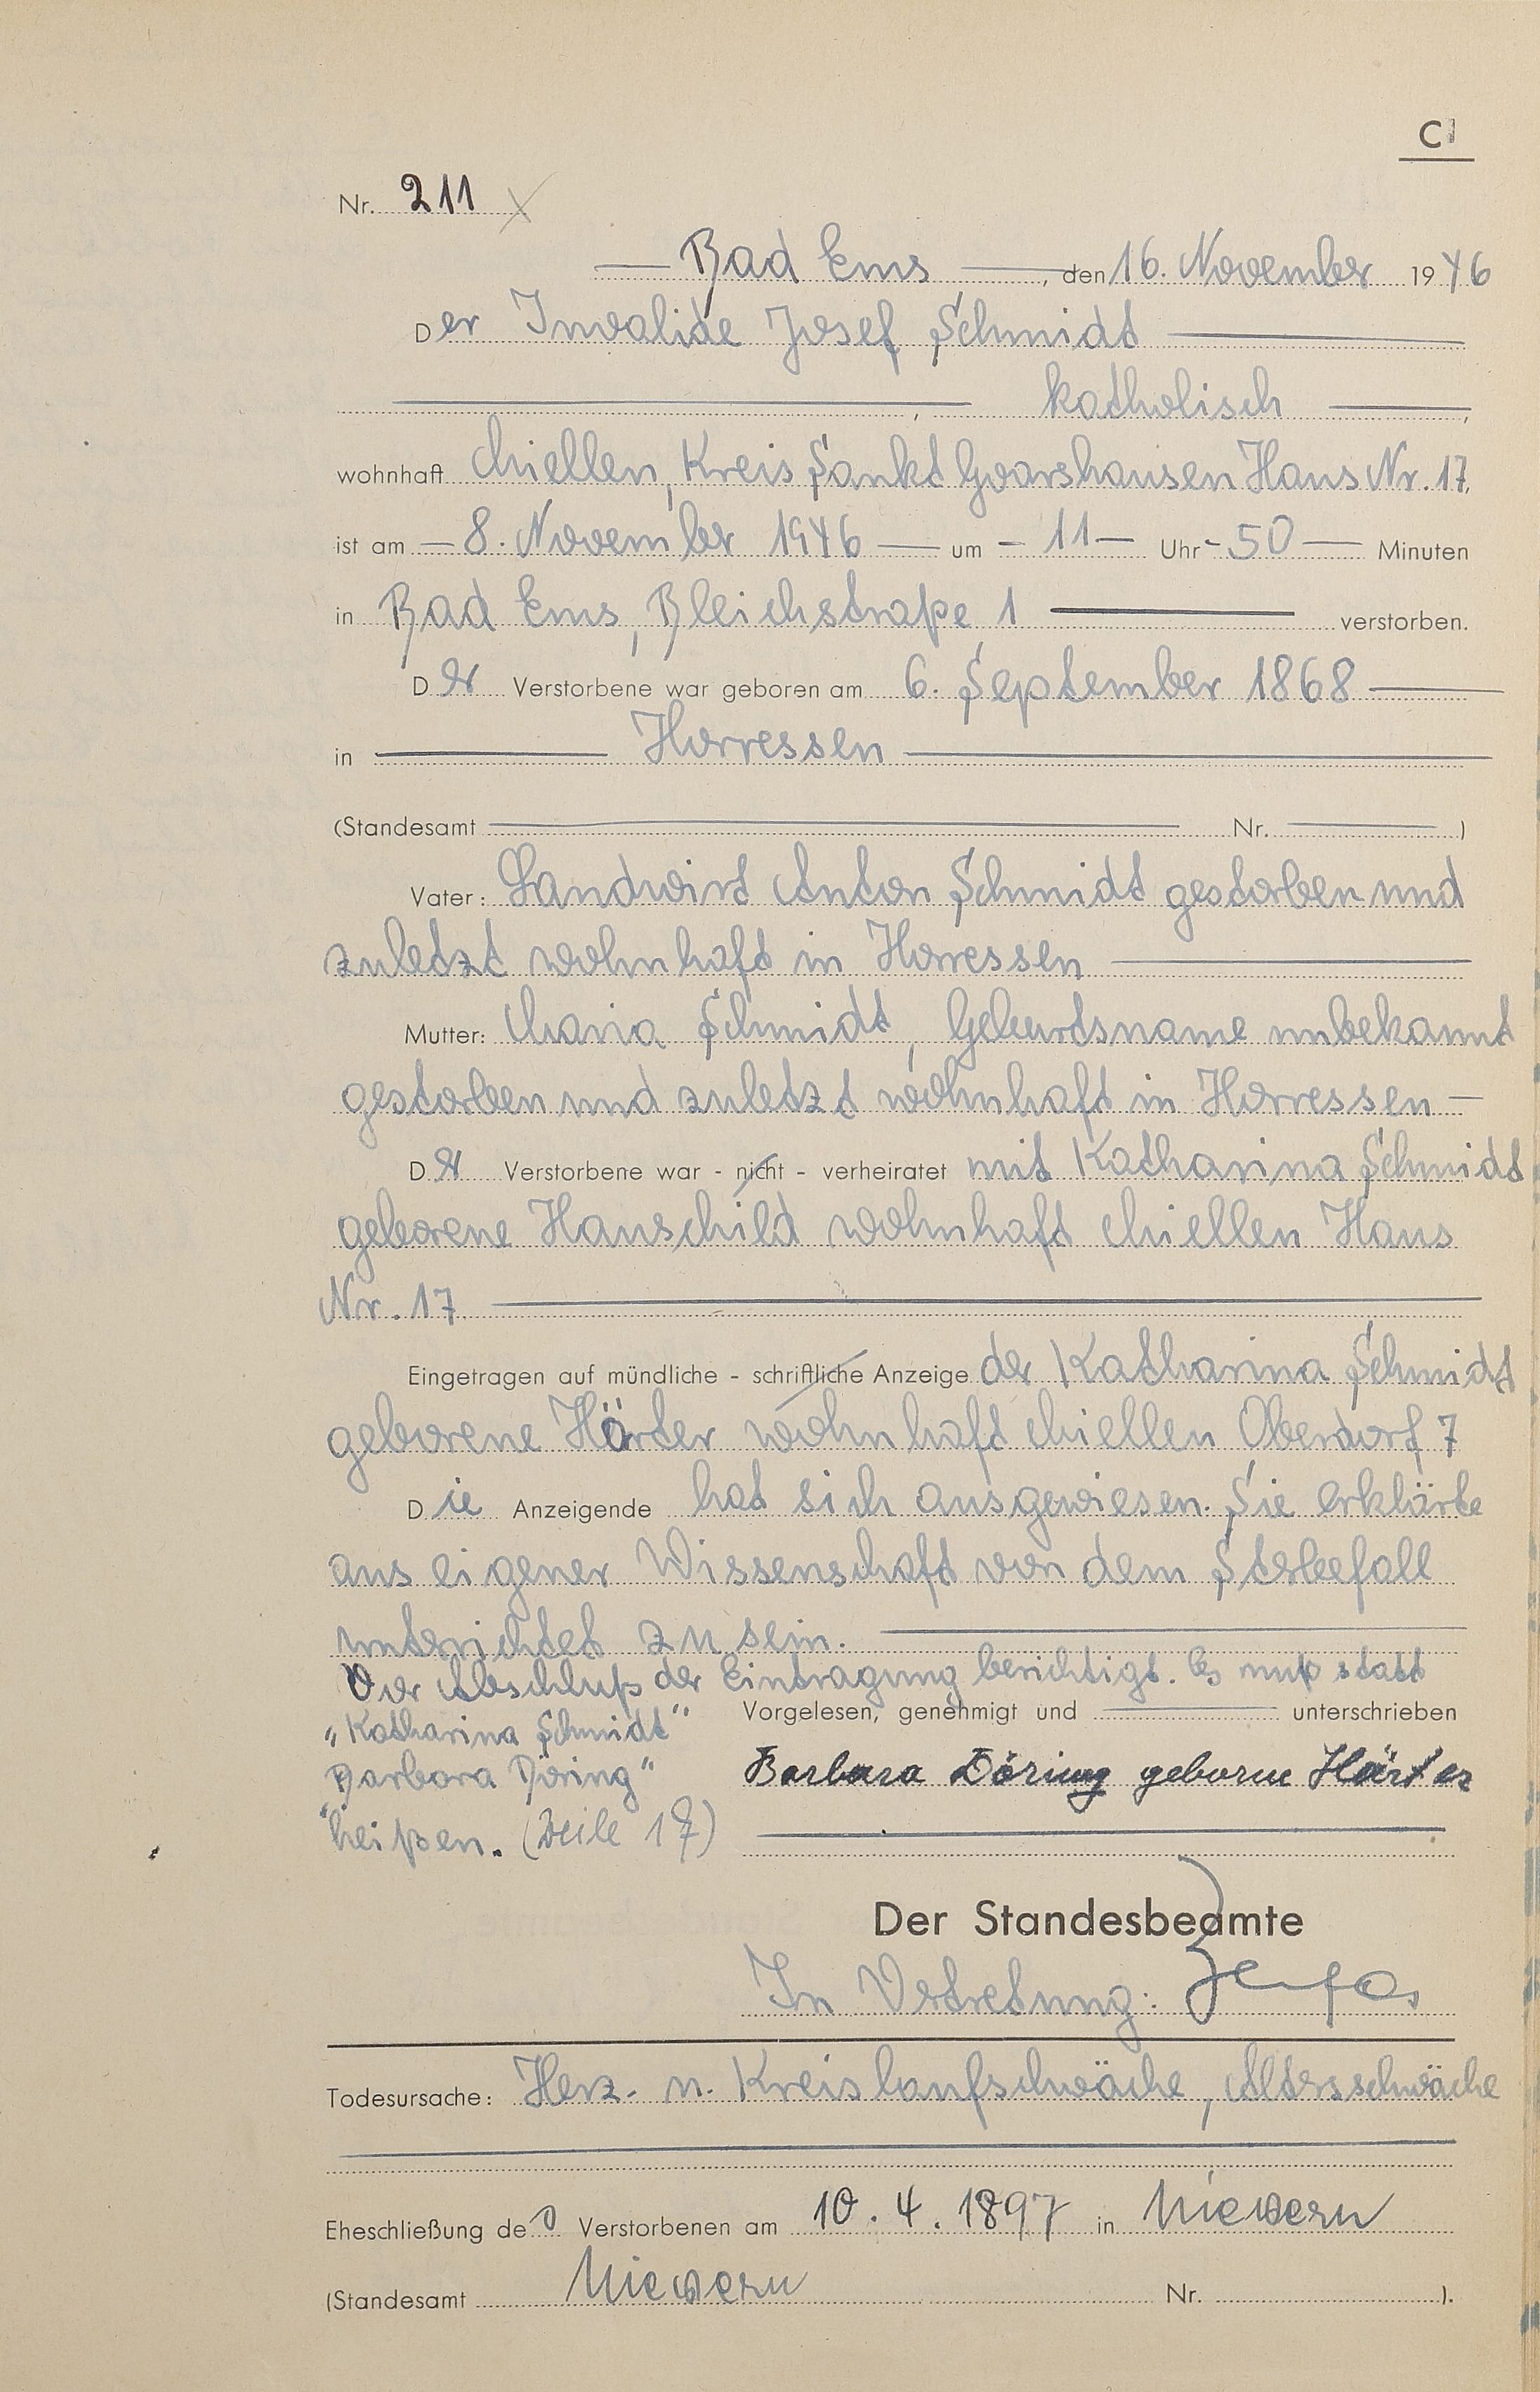 C
Nr. 211
Bad Ems, den 16. November 1946
Der Invalide Josef Schmidt
, katholisch,
wohnhaft Miellen, Kreis Sankt Goarshausen Haus Nr. 17,
ist am 8. November 1946 um 11 Uhr 50 Minuten
in Bad Ems, Bleichstraße 1 verstorben.
Der Verstorbene war geboren am 6. September 1868
in Horressen
(Standesamt Nr. )
Vater: Landwirt Anton Schmidt gestorben und
zuletzt wohnhaft in Horressen
Mutter: Maria Schmidt, Geburtsname unbekannt
gestorben und zuletzt wohnhaft in Horressen
Der Verstorbene war - nicht - verheiratet mit Katharina Schmidt
geborene Hauschild wohnhaft Miellen Haus
Nr. 17
Eingetragen auf mündliche - schriftliche Anzeige der Katharina Schmidt
geborene Härter wohnhaft Miellen Oberdorf 7
Die Anzeigende hat sich ausgewiesen. Sie erklärte
aus eigener Wissenschaft von dem Sterbefall
unterrichtet zu sein.
Vor Abschluß der Eintragung berichtigt. Es muß statt
„Katharina Schmidt"
Vorgelesen, genehmigt und unterschrieben
„Barbara Döring"
heißen. (Zeile 17)
Barbara Döring geborne Härter
Der Standesbeamte
In Vertretung:
Todesursache: Herz- u. Kreislaufschwäche, Altersschwäche
Eheschließung des Verstorbenen am 10. 4. 1897 in Nievern
(Standesamt Nievern Nr. ).